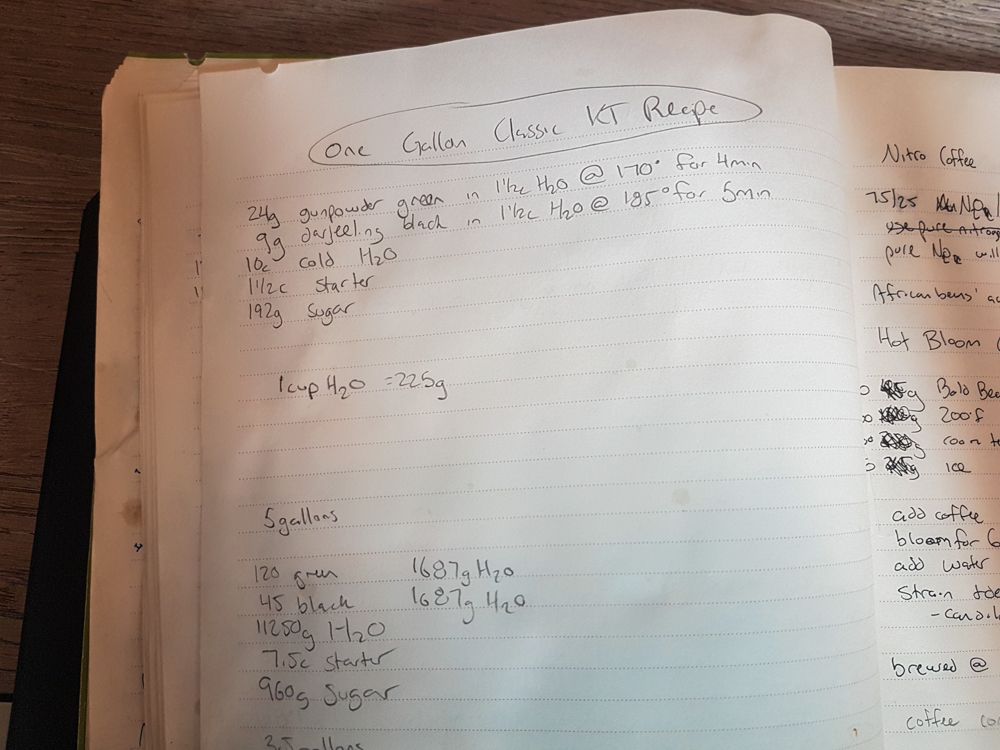 One Gallon Classic KT Recipe
24g gunpowder green in 1 1/2c H2O @ 170° for 4min
9g darjeeling black in 1 1/2c H2O @ 185° for 5min
10c cold H2O
1 1/2c starter
192g sugar
1 cup H2O = 225g
5 gallons
120 green 1687g H2O
45 black 1687g H2O
11250g H2O
7.5c starter
960g sugar
Nitro Coffee
75/25
pure will
African beans'
Hot Bloom
Bold
200°f
room
ice
add coffee
bloom for
add water
Strain
brewed @
coffee